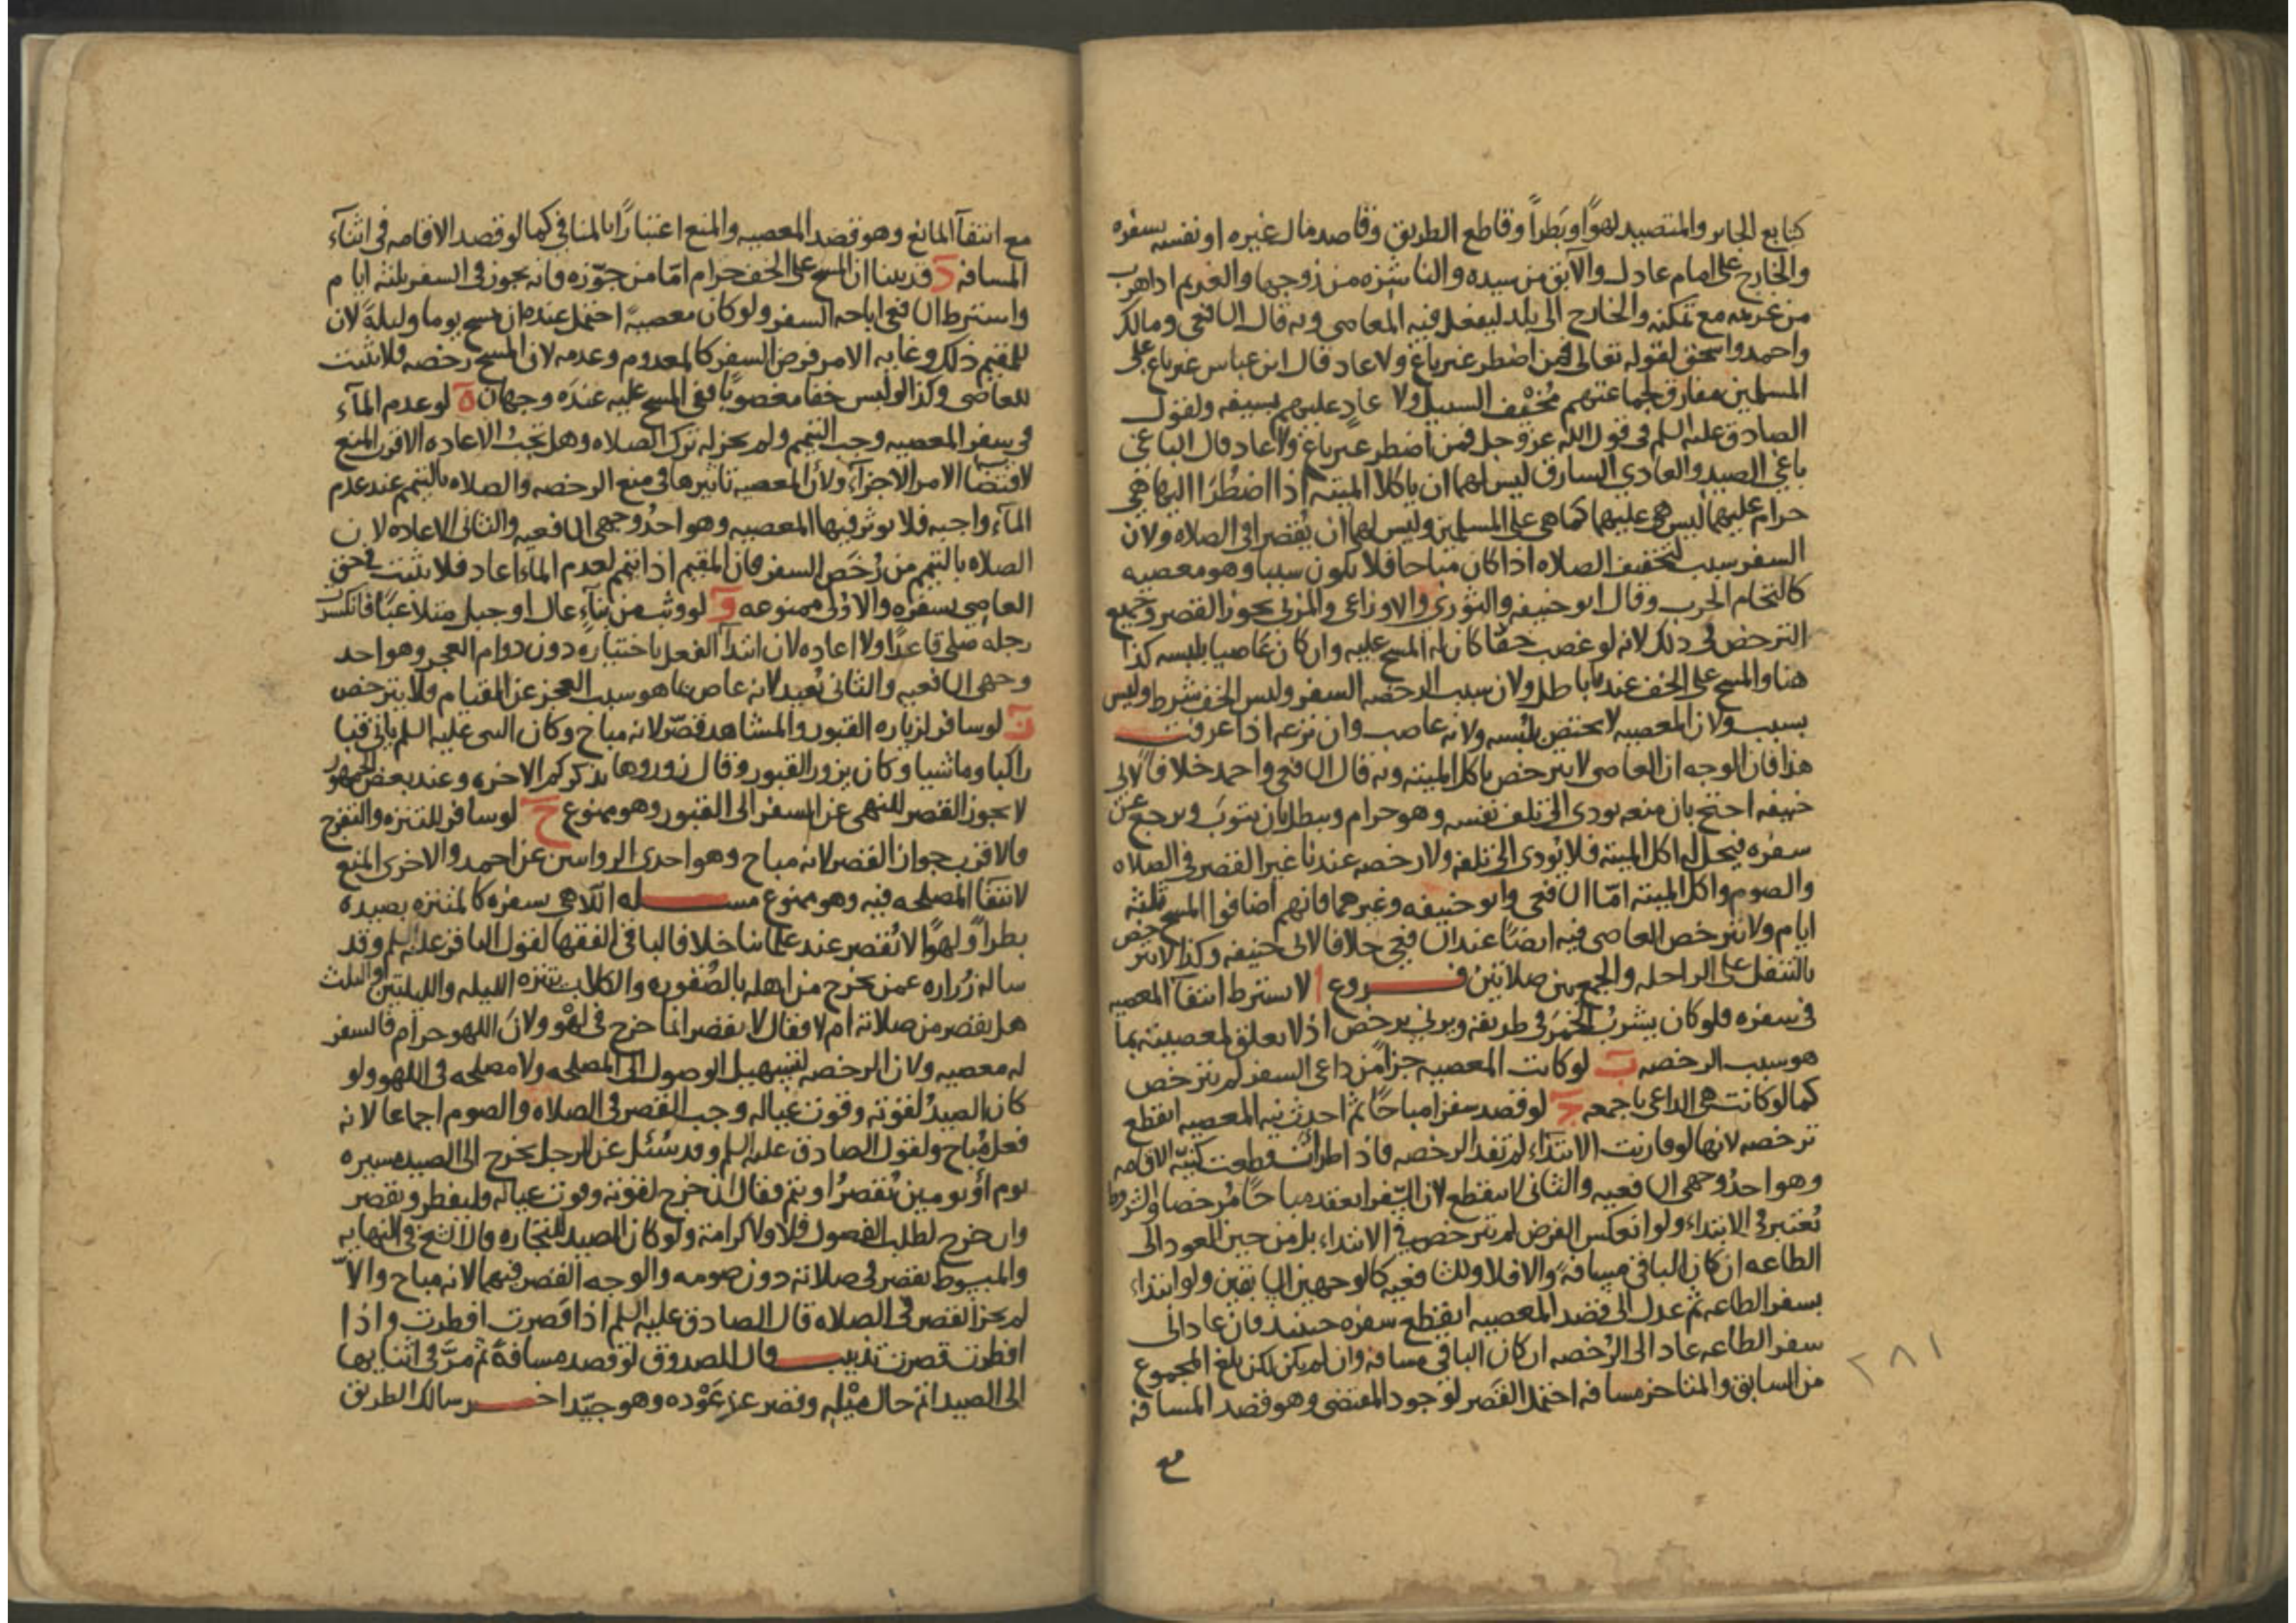 كتابع الجاير والمتصيد لهوًا وبَطَرًا وقاطع الطريق وقاصد مال غيره او نفسه بسفره
والخارج على امام عادل والآبق من سيده والناشزه من زوجها والغريم اذا هرب
من غريمه مع تمكنه والخارج الى بلد ليفعل فيه المعاصي وبه قال الشافعي ومالك
واحمد واسحق لقوله تعالى فمن اضطر غير باغ ولا عاد قال ابن عباس غير باغ على
المسلمين مفارق لجماعتهم مُخْيف السبيل ولا عادٍ عليهم بسيفه ولقول
الصادق عليه السلم في قول الله عز وجل فمن اضطر غير باغ ولا عاد قال الباغي
باغي الصيد والعادي السارق ليس لهما ان ياكلا الميته اذا اضطُرَا اليها هي
حرام عليهما ليس هي عليهما كما هي على المسلمين وليس لهما ان يُقصرا في الصلاه ولان
السفر سبب لتخفيف الصلاه اذا كان مباحا فلا يكون سببا وهو معصيه
كالتحام الحرب وقال ابو حنيفه والثوري والاوزاعي والمزني يجوز القصر وجميع
الترخص في ذلك لانه لو غصب خفًا كان له المسح عليه وان كان عاصيا بلبسه كذا
هنا والمسح على الخف عندنا باطل ولان سبب الرخصه السفر ولبس الخف شرط وليس
بسبب ولان المعصيه لا يختص بلبسه ولانه غاصب وان نزعه اذا عرفت
هذا فان الوجه ان العاصي لا يترخص باكل الميته وبه قال الشافعي واحمد خلافًا لابي
حنيفه احتج بان منعه يودي الى تلف نفسه وهو حرام ويبطل بان يتوبَ ويرجع عن
سفره فيحل له اكل الميته فلا يُودى الى تلفه ولا رخصه عندنا غير القصر في الصلاه
والصوم واكل الميته امّا الشافعي وابو حنيفه وغيرهما فانهم اضافوا المسح ثلثة
ايام ولا يترخص العاصي فيه ايضًا عند الشافعي خلافا لابي حنيفه وكذا لا يترخص
بالتنفل على الراحله والجمع بين صلاتين فروع ا لا يشترط انتفآ المعصيه
في سفره فلو كان يشربُ الخمرَ في طريقه ويزني يرخص اذ لا تعلق لمعصيته بما
هو سبب الرخصه ب لو كانت المعصيه جزأ من داعي السفر لم يترخص
كما لو كانت هي الداعي باجمعه ج لو قصد سفرا مباحًا ثم احدث نيه المعصيه انقطع
ترخصه لانها لو قارنت الابتدآء لم تفد الرخصه فاذا طرأت قطعت كنيّه الاقامه
وهو احدُ وجهي الشافعيه والثاني لا ينقطع لان السّفر انعقد مباحًا مُرخصا والشروط
تُعتبر في الابتداء ولو انعكس الفرض لم يترخص في الابتداء بل من حين العود الى
الطاعه ان كان الباقي مسافة والا فلا وللشافعيه كالوجهين السابقين ولو ابتداء
بسفر الطاعه ثم عدل الى قصد المعصيه انقطع سفره حينئذ فان عاد الى
سفر الطاعه عاد الى الرُخصه ان كان الباقي مسافه وان لم يكن لكن بلغ المجموع
من السابق والمتاخر مسافه احتمل القصر لوجود المقتضي وهو قصد المسافه
مع
٢٨١
مع انتفآ المانع وهو قصد المعصيه والمنع اعتبارًا بالمنافي كما لو قصد الاقامه في اثنآء
المسافه د قد بينا ان المسح على الخف حرام امّا من جوّزه فانه يجوز في السفر ثلثه ايام
واشترط الشافعي اباحه السفر ولو كان معصيةً احتمل عنده ان يمسح يوما وليلةً لان
للمقيم ذلك وغايه الامر فرض السفر كالمعدوم وعدمه لان المسح رخصه فلا تثبت
للعاصي وكذا لو لبس خفا مغصوبًا ففي المسح عليه عندَه وجهان ه لو عدم المآء
في سفر المعصيه وجب التيمم ولم يجز له ترك الصلاه وهل تجبُ الاعاده الاقرب المنع
لاقتضا الامر الاجزآء ولان المعصيه تاثيرها في منع الرخصه والصلاه بالتيمم عند عدم
المآء واجبه فلا يوثر فيها المعصيه وهو احدُ وجهي الشافعيه والثاني الاعاده لان
الصلاه بالتيمم من رُخَص السفر فان المقيم اذا تيمم لعدم المآء اعاد فلا يثبت في حق
العاصي بسفره والاولى ممنوعه و لو وثب من بنآءٍ عال او جبل متلاعبًا فانكسرت
رجله صلى قاعدًا ولا اعاده لان ابتدآ الفعل باختياره دون دوام العجز وهو احد
وجهي الشافعيه والثاني يُعيد لانه عاص بما هو سبب العجز عن القيام فلا يترخص
ز لو سافر لزياره القبور والمشاهد قصّر لانه مباح وكان النبي عليه السلم ياتي قبا
راكبا وماشيا وكان يزور القبور وقال زوروها تذكركم الاخره وعند بعض الجمهور
لا يجوز القصر للنهي عن السفر الى القبور وهو ممنوع ح لو سافر للتنزه والتفرج
فالاقرب جواز القصر لانه مباح وهو احدى الروايتين عن احمد والاخرى المنع
لانتفآ المصلحه فيه وهو ممنوع مسله اللاهي بسفره كالمتنزه بصيده
بطراً ولهوًا لا يُقصر عند علمائنا خلافا لباقي الفقها لقول الباقر عليه السلم وقد
ساله زُراره عمن يخرج من اهله بالصُقوره والكلاب يتنزه الليله والليلتين والثلث
هل يقصر من صلاته ام لا فقال لا يقصر انما خرج في لهْو ولانَ اللهو حرام فالسفر
له معصيه ولان الرخصه لتسهيل الوصول الى المصلحه ولا مصلحه في اللهو ولو
كان الصيدُ لقوته وقوت عياله وجب القصر في الصلاه والصوم اجماعا لانه
فعل مُباح ولقول الصادق عليه السلم وقد سُئل عن الرجل يخرج الى الصيد مسيره
يوم أو يومين يُقصرُ او يتم فقال ان خرج لقوته وقوت عياله فليفطر ويقصر
وان خرج لطلب الفضول فلا ولا كرامة ولو كان الصيد للتجاره قال الشيخ في النهايه
والمبسوط يقصر في صلاته دون صومه والوجه القصر فيهما لانه مباح والاّ
لم يجز القصر في الصلاه قال الصادق عليه السلم اذا قَصرت افطرت واذا
افطرت قصرت تذنيب قال الصدوق لو قصد مسافةً ثم مرَّ في اثنايها
الى الصيد اتم حال ميْله وقصر عند عَوْده وهو جيّد اخر سالك الطريق